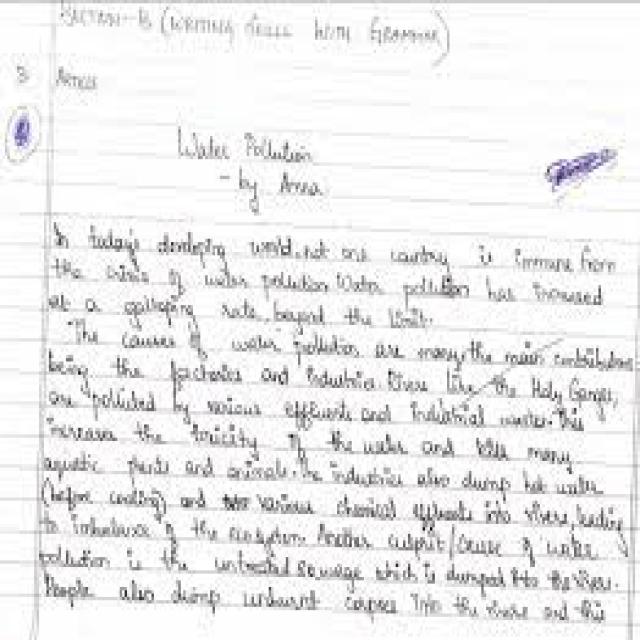 SECTION-B (WRITING SKILLS WITH GRAMMAR)
3
Water Pollution
- by
In today's developing world, not one country is immune from
the crisis of water pollution. Water pollution has increased
at a galloping rate, beyond the limit.
The causes of water pollution are many, the main contributors
being the factories and industries. Rivers like the Holy Ganges,
are polluted by various effluents and industrial wastes. This
increases the toxicity of the water and kills many
aquatic plants and animals. The industries also dump hot water
(before cooling) and various chemical effluents into rivers, leading
to imbalance of the ecosystem. Another culprit/cause of water
pollution is the untreated sewage which is dumped into the rivers.
People also dump unburnt corpses into the rivers and this